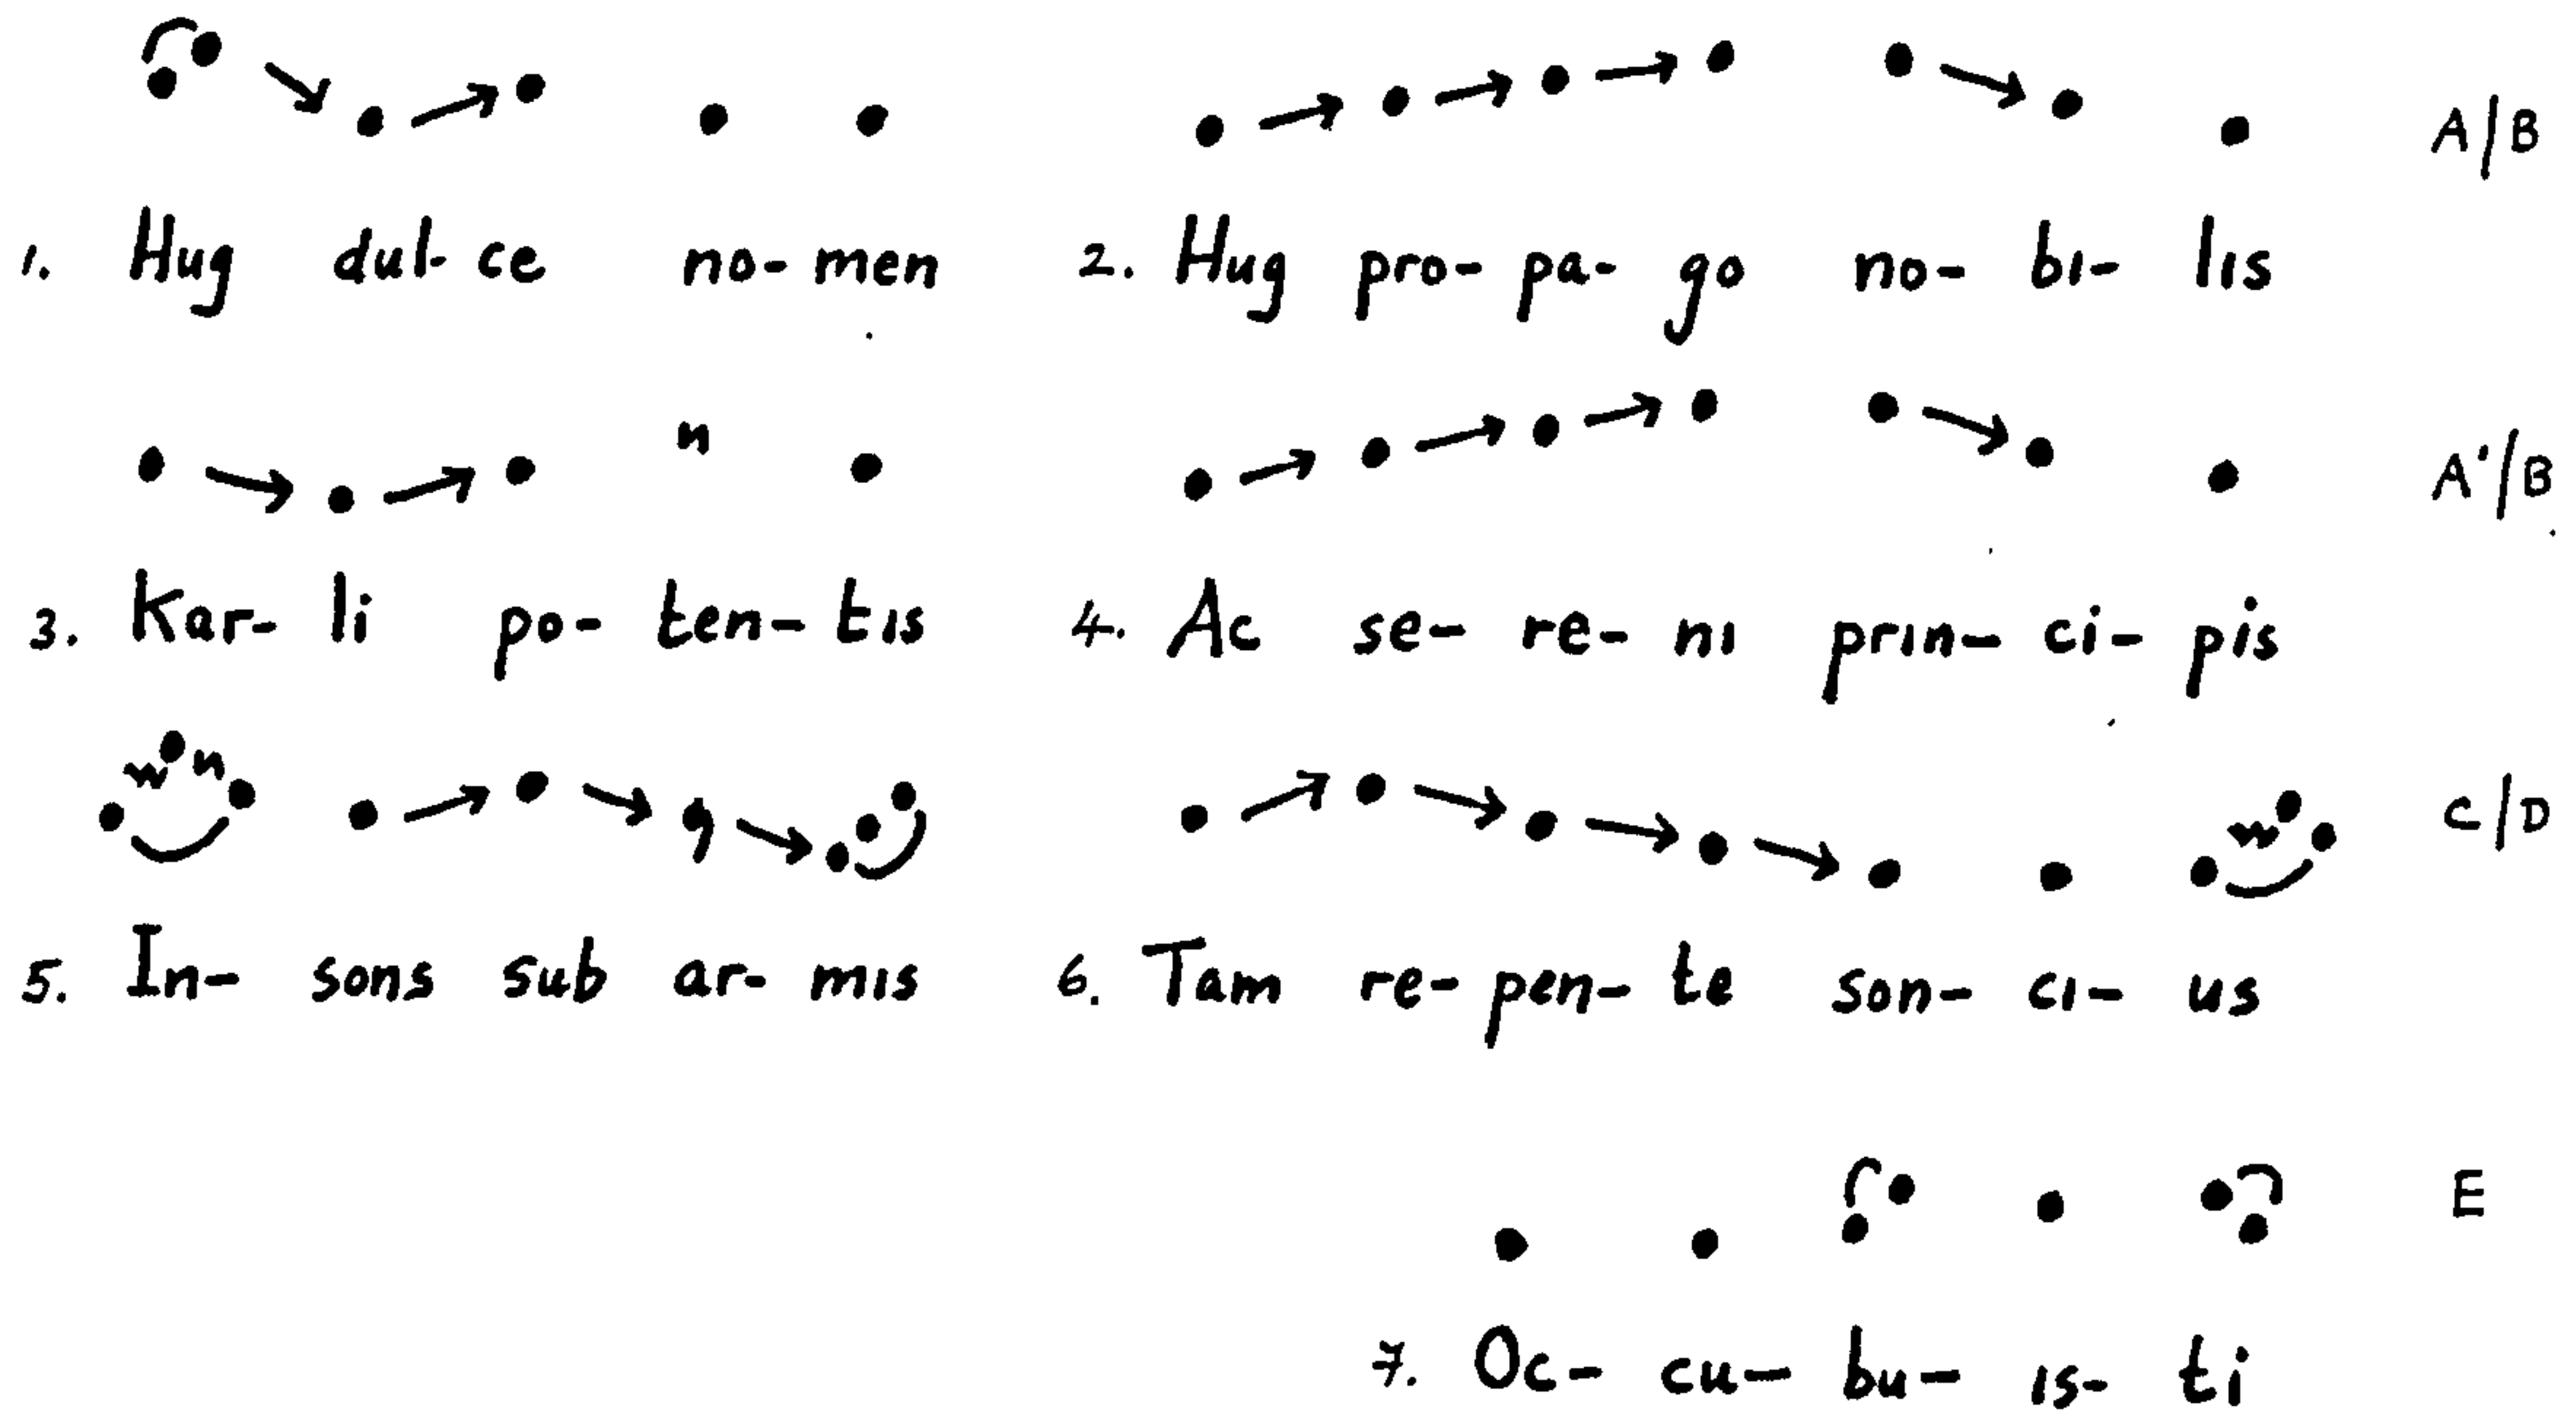 A/B
1. Hug dul- ce no- men 2. Hug pro- pa- go no- bı- lıs
n
A'/B
3. Kar- li po- ten- tıs 4. Ac se- re- nı prın- ci- pis
w n w
C/D
5. In- sons sub ar- mıs 6. Tam re- pen- te son- cı- us
E
7. Oc- cu- bu- ıs- ti